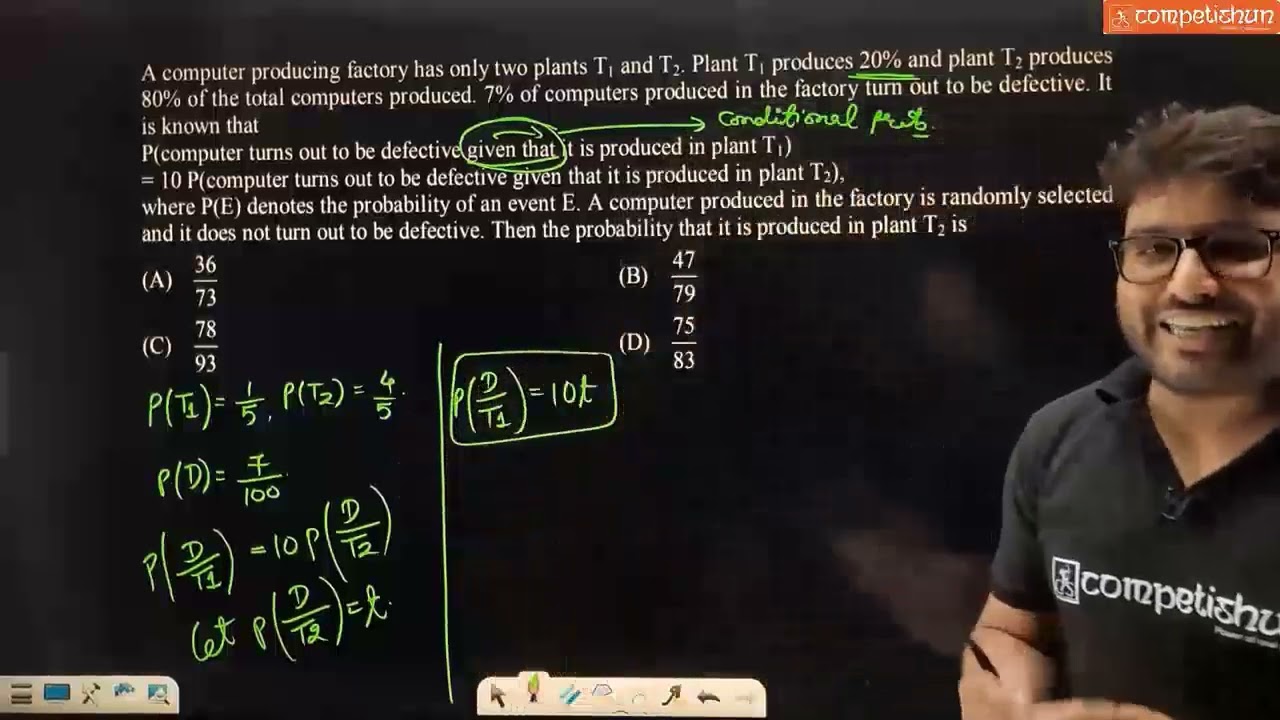 competishun
A computer producing factory has only two plants T₁ and T₂. Plant T₁ produces 20% and plant T₂ produces
80% of the total computers produced. 7% of computers produced in the factory turn out to be defective. It
is known that
conditional prob.
P(computer turns out to be defective given that it is produced in plant T₁)
= 10 P(computer turns out to be defective given that it is produced in plant T₂),
where P(E) denotes the probability of an event E. A computer produced in the factory is randomly selected
and it does not turn out to be defective. Then the probability that it is produced in plant T₂ is
(A) 36/73 (B) 47/79
(C) 78/93 (D) 75/83
P(T1) = 1/5, P(T2) = 4/5.
P(D/T1) = 10t
P(D) = 7/100.
P(D/T1) = 10P(D/T2)
let P(D/T2) = t.
competishun